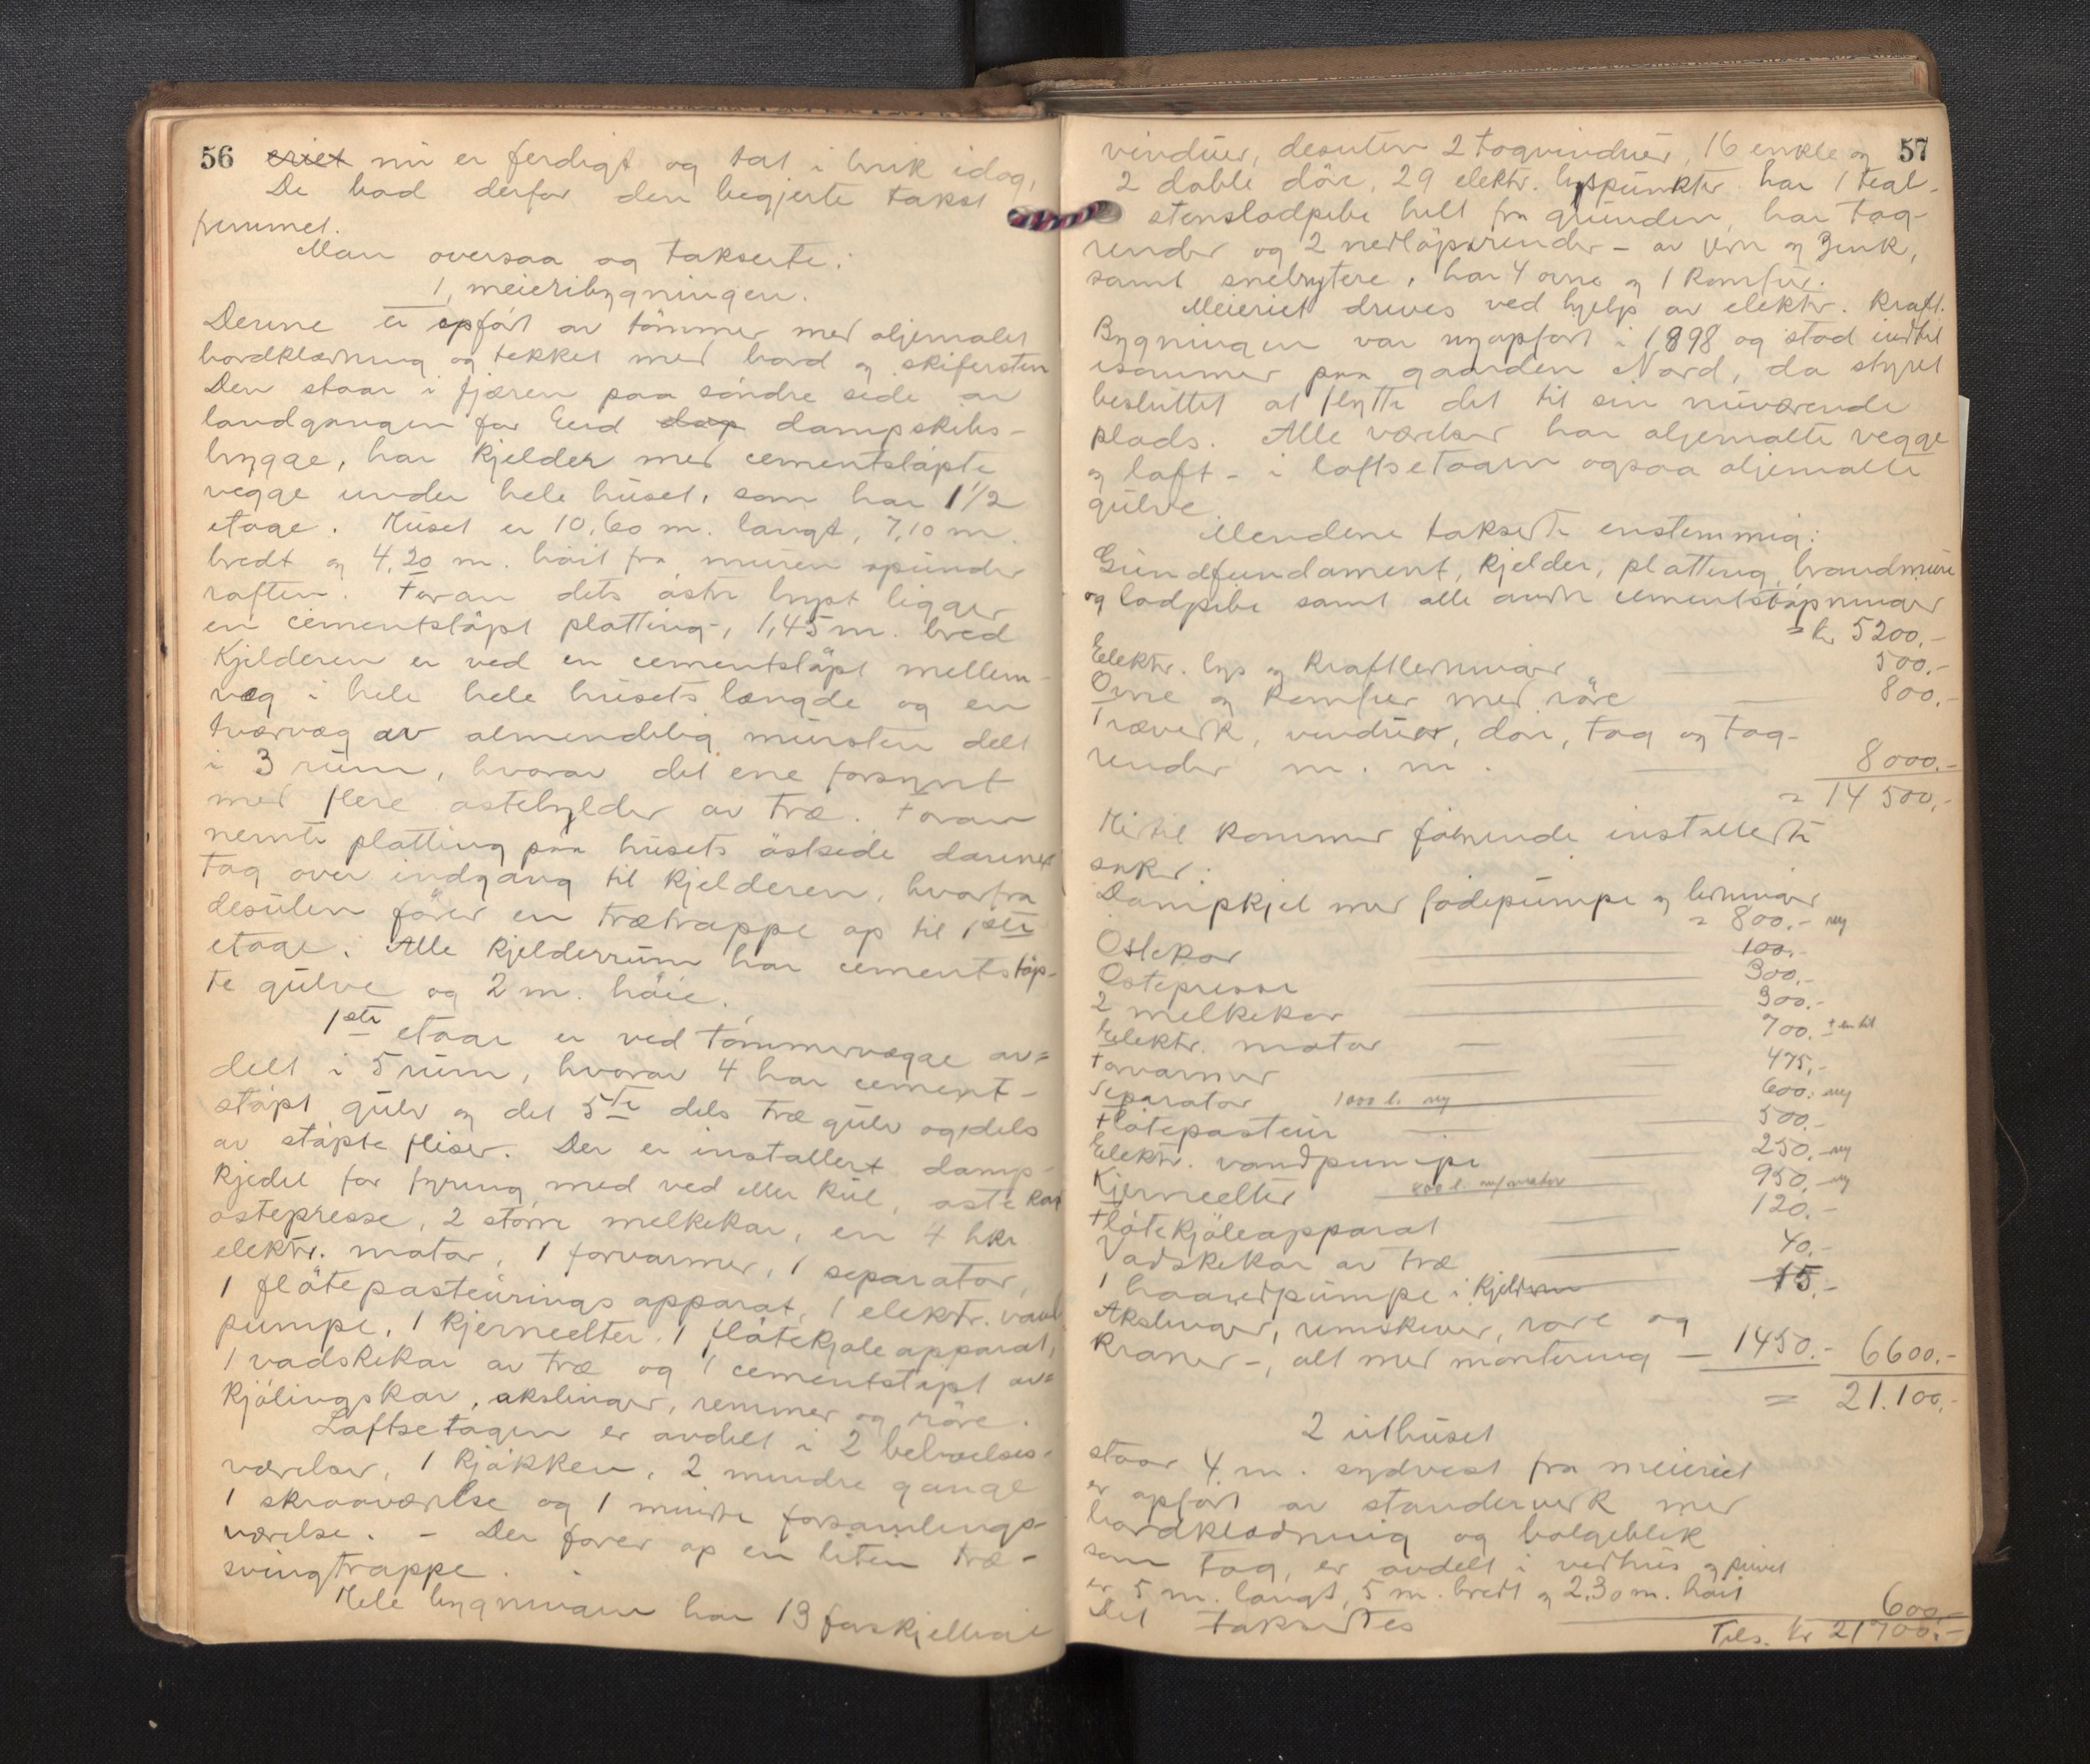 56
eriet nu er ferdigt og tat i bruk idag,
De bad derfor den begjerte takst
fremmet.
Man oversaa og takserte:
1, meieribygningen.
Denne er opført av tømmer med oljemalet
bordklædning og tekket med bord og skifersten
Den staar i fjæren paa søndre side av
landgangen for Eid dap dampskibs-
brygge, har kjelder med cementstøpte
vegge under hele huset, som har 1 1/2
etage. Huset er 10,60 m. langt, 7,10 m.
bredt og 4,20 m. høit fra muren opunder
raften. Foran dets østre ligger
en cementstøpt platting, 1,45 m. bred
Kjelderen er ved en cementstøpt mellem-
væg i hele hele husets længde og en
tværvæg av almendelig mursten delt
i 3 rum, hvorav det ene forsynt
med flere ostehylder av træ. Foran
nemte platting paa husets østside danner
tag over indgang til kjelderen, hvorfra
desuten fører en trætrappe op til 1ste
etage. Alle kjelderrum har cementstøp-
te gulve og 2 m. høie.
1ste etage er ved tømmervægge av=
delt i 5 rum, hvorav 4 har cement-
støpt gulv og det 5te dels træ gulv og dels
av støpte fliser. Der er installert damp-
kjedel for fyring med ved eller kul, ostekar
ostepresse, 2 større melkekar, en 4 hkr.
elektr. motor, 1 forvarmer, 1 separator,
1 fløtepasteurings apparat, 1 elektr. vand
pumpe, 1 kjerneelter, 1 fløtekjøleapparat,
1 vadskekar av træ og 1 cementstøpt av=
kjølingskar, akslinger, remmer og røre.
Loftsetagen er avdelt i 2 beboelses-
værelser, 1 kjøkken, 2 mindre gange
1 skraaværelse og 1 mindre forsamlings-
værelse. - Der fører op en liten træ-
svingtrappe.
Hele bygningen har 13 forskjellige
57
vinduer, desuten 2 tagvinduer, 16 enkle og
2 doble døre, 29 elektr. lyspunkter, har 1 tegl-
stenslodpibe helt fra grunden, har tag-
render og 2 nedløpsrender - av jern og zink,
samt snebrytere, har 4 ovne og 1 komfur.
Meieriet drives ved hjelp av elektr. kraft.
Bygningen var nyopført i 1898 og stod indtil
isommer paa gaarden Nord, da styret
besluttet at flytte det til sin nuværende
plads. Alle værelser har oljemalte vegge
og loft - i loftsetagen ogsaa oljemalte
gulve.
Mendene takserte enstemmig:
Grundfundament, kjelder, platting, brandmure
og lodpibe samt alle andre cementstøpninger
= kr 5200.-
Elektr. lys og kraftledninger 500.-
Ovne og komfur med røre 800.-
Træverk, vinduer, døre, tag og tag-
render m. m. 8000.-
= 14 500.-
Hertil kommer følgende installerte
saker:
Dampkjel med fødepumpe og ledninger
= 800.- ny
Ostekar 100.-
Ostepresse 300.-
2 melkekar 300.-
Elektr. motor 700. + en til
Forvarmer 475.-
Separator 1000 l. ny 600.- ny
Fløtepasteur 500.-
Elektr. vandpumpe 250.- ny
Kjerneelter 800 l. m/motor 950.- ny
Fløtekjøleapparat 120.-
Vadskekar av træ 40.-
1 haandpumpe i kjelderen 15.-
Akslinger, remskiver, røre og
kraner -, alt med montering - 1450.- 6600.-
= 21.100.-
2 uthuset
staar 4 m. sydvest fra meieriet
er opført av standerverk med
bordklædning og bølgeblik
som tag, er avdelt i vedhus og privet
er 5 m. langt, 5 m. bredt og 2,30 m. høit
Det takseres 600.-
Tils. kr 21700.-